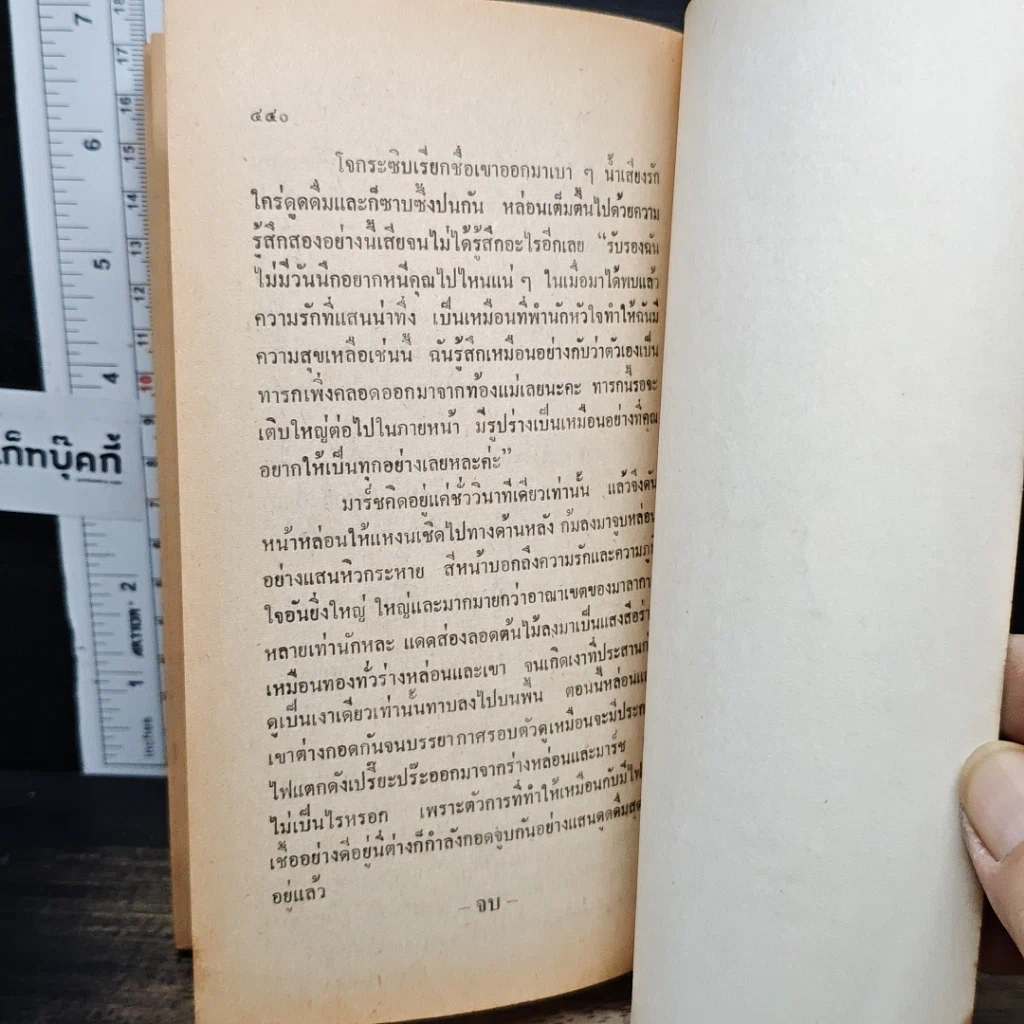 ๔๕๐
โจกระซิบเรียกชื่อเขาออกมาเบา ๆ น้ำเสียงรัก
ใคร่ดูดดื่มและก็ซาบซึ้งปนกัน หล่อนเต็มตื้นไปด้วยความ
รู้สึกสองอย่างนี้เสียจนไม่ได้รู้สึกอะไรอีกเลย “รับรองฉัน
ไม่มีวันนึกอยากหนีคุณไปไหนแน่ ๆ ในเมื่อมาได้พบแล้ว
ความรักที่แสนน่าทึ่ง เป็นเหมือนที่พำนักหัวใจทำให้ฉันมี
ความสุขเหลือเช่นนี้ ฉันรู้สึกเหมือนอย่างกับว่าตัวเองเป็น
ทารกเพิ่งคลอดออกมาจากท้องแม่เลยนะคะ ทารกนี้รอจะ
เติบใหญ่ต่อไปในภายหน้า มีรูปร่างเป็นเหมือนอย่างที่คุณ
อยากให้เป็นทุกอย่างเลยหละค่ะ”
มาร์ชคิดอยู่แค่ชั่ววินาทีเดียวเท่านั้น แล้วจึงดัน
หน้าหล่อนให้แหงนเชิดไปทางด้านหลัง ก้มลงมาจูบหล่อน
อย่างแสนหิวกระหาย สีหน้าบอกถึงความรักและความภูมิ
ใจอันยิ่งใหญ่ ใหญ่และมากมายกว่าอาณาเขตของมาลากา
หลายเท่านักหละ แดดส่องลอดต้นไม้ลงมาเป็นแสงสีอร่า
เหมือนทองทั่วร่างหล่อนและเขา จนเกิดเงาที่ประสานกั
ดูเป็นเงาเดียวเท่านั้นทาบลงไปบนพื้น ตอนนี้หล่อนแ
เขาต่างกอดกันจนบรรยากาศรอบตัวดูเหมือนจะมีประก
ไฟแตกดังเปรี๊ยะประออกมาจากร่างหล่อนและมาร์ช
ไม่เป็นไรหรอก เพราะตัวการที่ทำให้เหมือนกับมีไฟ
เชื้ออย่างดีอยู่นี่ต่างก็กำลังกอดจูบกันอย่างแสนดูดดื่มสุด
อยู่แล้ว
– จบ –
เก็ทบุ๊คกี้